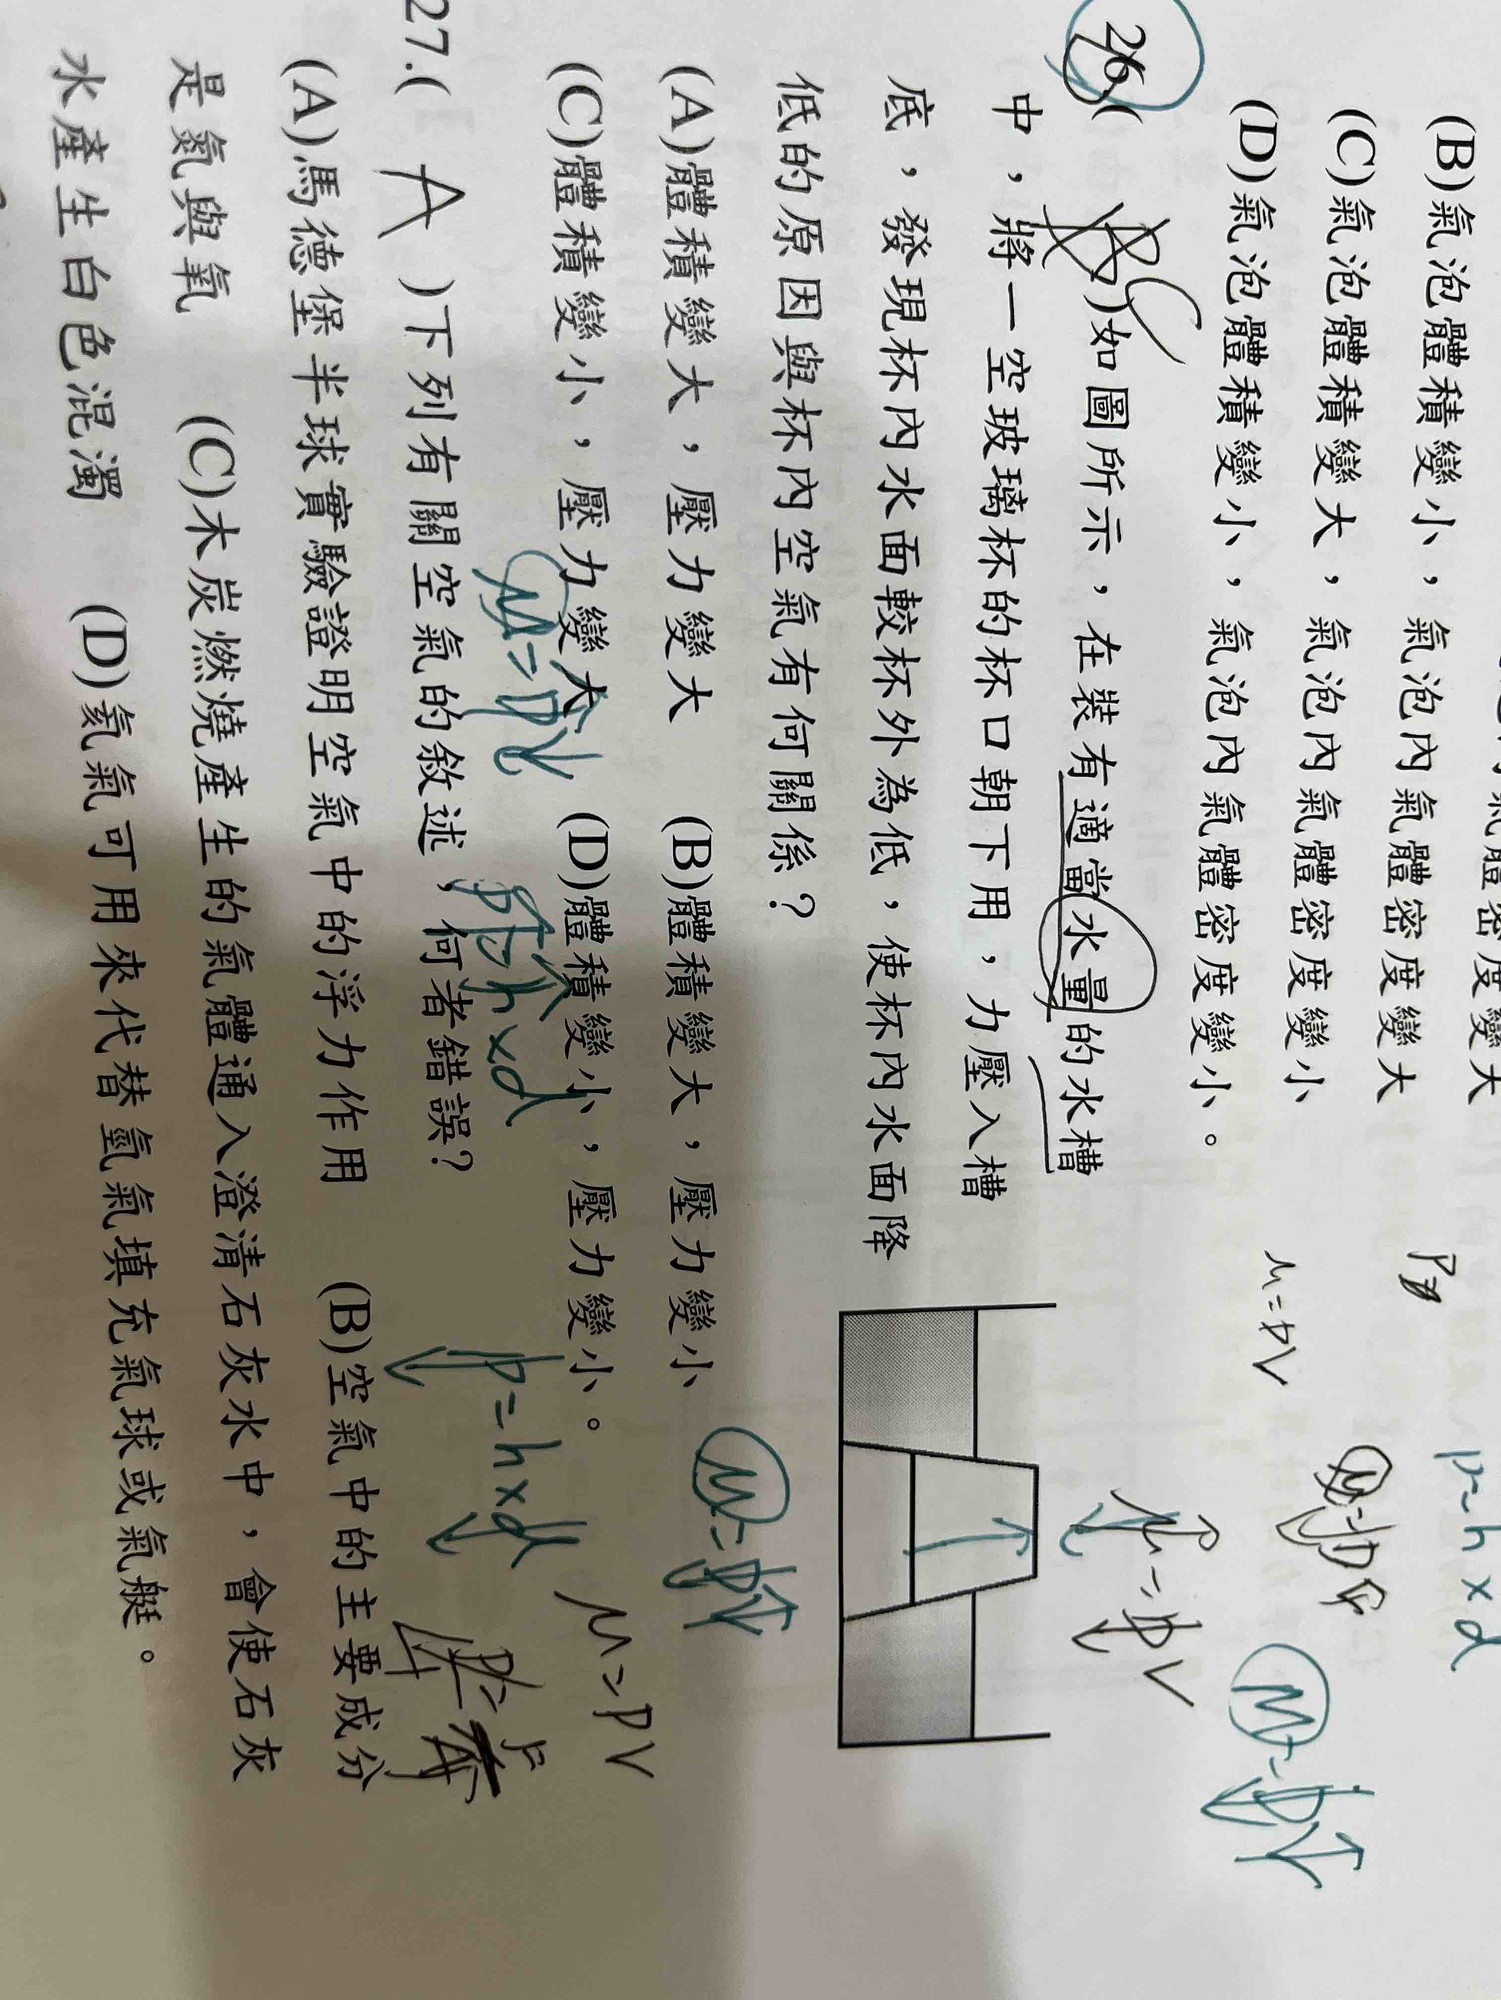 (B)氣泡體積變小，氣泡內氣體密度變大
(C)氣泡體積變大，氣泡內氣體密度變小
(D)氣泡體積變小，氣泡內氣體密度變小。
26.( C )如圖所示，在裝有適當水量的水槽
中，將一空玻璃杯的杯口朝下用，力壓入槽
底，發現杯內水面較杯外為低，使杯內水面降
低的原因與杯內空氣有何關係？
(A)體積變大，壓力變大 (B)體積變大，壓力變小
(C)體積變小，壓力變大 (D)體積變小，壓力變小。
27.( A )下列有關空氣的敘述，何者錯誤？
(A)馬德堡半球實驗證明空氣中的浮力作用 (B)空氣中的主要成分
是氮與氧 (C)木炭燃燒產生的氣體通入澄清石灰水中，會使石灰
水產生白色混濁 (D)氦氣可用來代替氫氣填充氣球或氣艇。
P=h×d
M=PV
M=PV
M=PV
M=PV
M=PV
P=h×d
P=h×d
M=PV